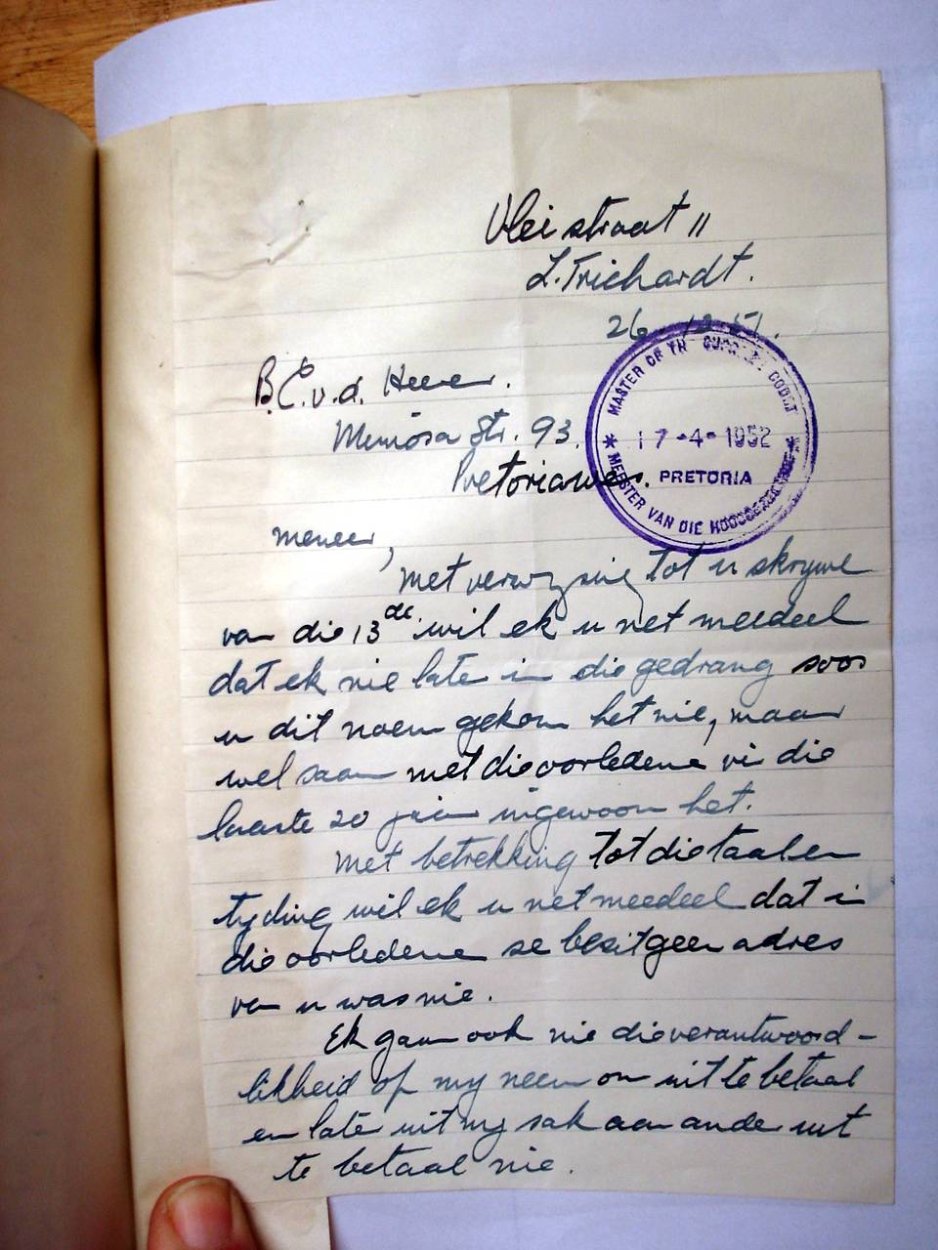 Vleistraat 11
L. Trichardt.
26.12.51.
B.C. v.d. Heever.
Mimosa Str. 93.
Pretoriawes.
MASTER OF THE SUPREME COURT
17-4-1952
PRETORIA
MEESTER VAN DIE HOOGGEREGSHOF
Meneer,
Met verwysing tot u skrywe
van die 13de wil ek u net meedeel
dat ek nie later in die gedrang soos
u dit noem gekom het nie, maar
wel saam met die oorledene vir die
laaste 20 jaar ingewoon het.
Met betrekking tot die taal en
tyding wil ek u net meedeel dat in
die oorledene se besit geen adres
van u was nie.
Ek gaan ook nie die verantwoord-
likheid op my neem om uit te betaal
en later uit my sak aan ander uit
te betaal nie.